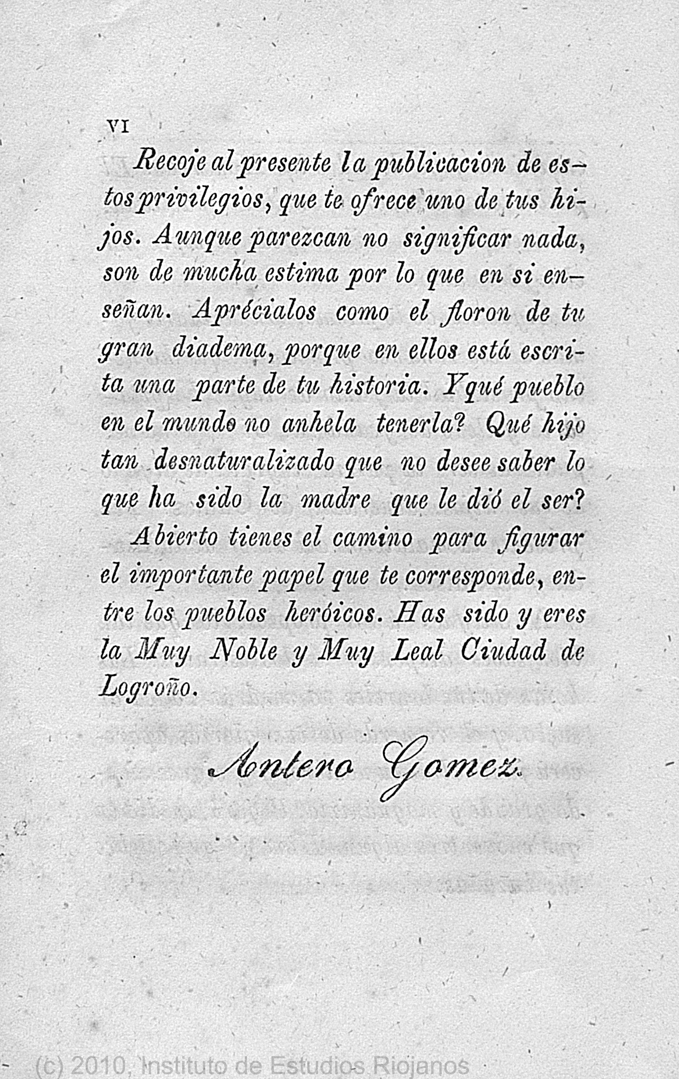 VI
Recoje al presente la publicacion de es-
tos privilegios, que te ofrece uno de tus hi-
jos. Aunque parezcan no significar nada,
son de mucha estima por lo que en si en-
señan. Aprécialos como el floron de tu
gran diadema, porque en ellos está escri-
ta una parte de tu historia. Y qué pueblo
en el mundo no anhela tenerla? Qué hijo
tan desnaturalizado que no desee saber lo
que ha sido la madre que le dió el ser?
Abierto tienes el camino para figurar
el importante papel que te corresponde, en-
tre los pueblos heróicos. Has sido y eres
la Muy Noble y Muy Leal Ciudad de
Logroño.
Antero Gomez.
(c) 2010, Instituto de Estudios Riojanos